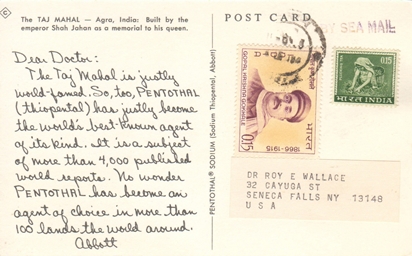 The TAJ MAHAL — Agra, India: Built by the
emperor Shah Jahan as a memorial to his queen.
Dear Doctor:
The Taj Mahal is justly
world-famed. So, too, PENTOTHAL
(thiopental) has justly become
the world's best-known agent
of its kind. It is a subject
of more than 4,000 published
world reports. No wonder
PENTOTHAL has become an
agent of choice in more than
100 lands the world around.
Abbott
PENTOTHAL® SODIUM (Sodium Thiopental, Abbott)
POST CARD
BY SEA MAIL
GOPAL KRISHNA GOKHALE
1866-1915
भारत
0.15
0.15
भारत INDIA
DR ROY E WALLACE
32 CAYUGA ST
SENECA FALLS NY 13148
U S A